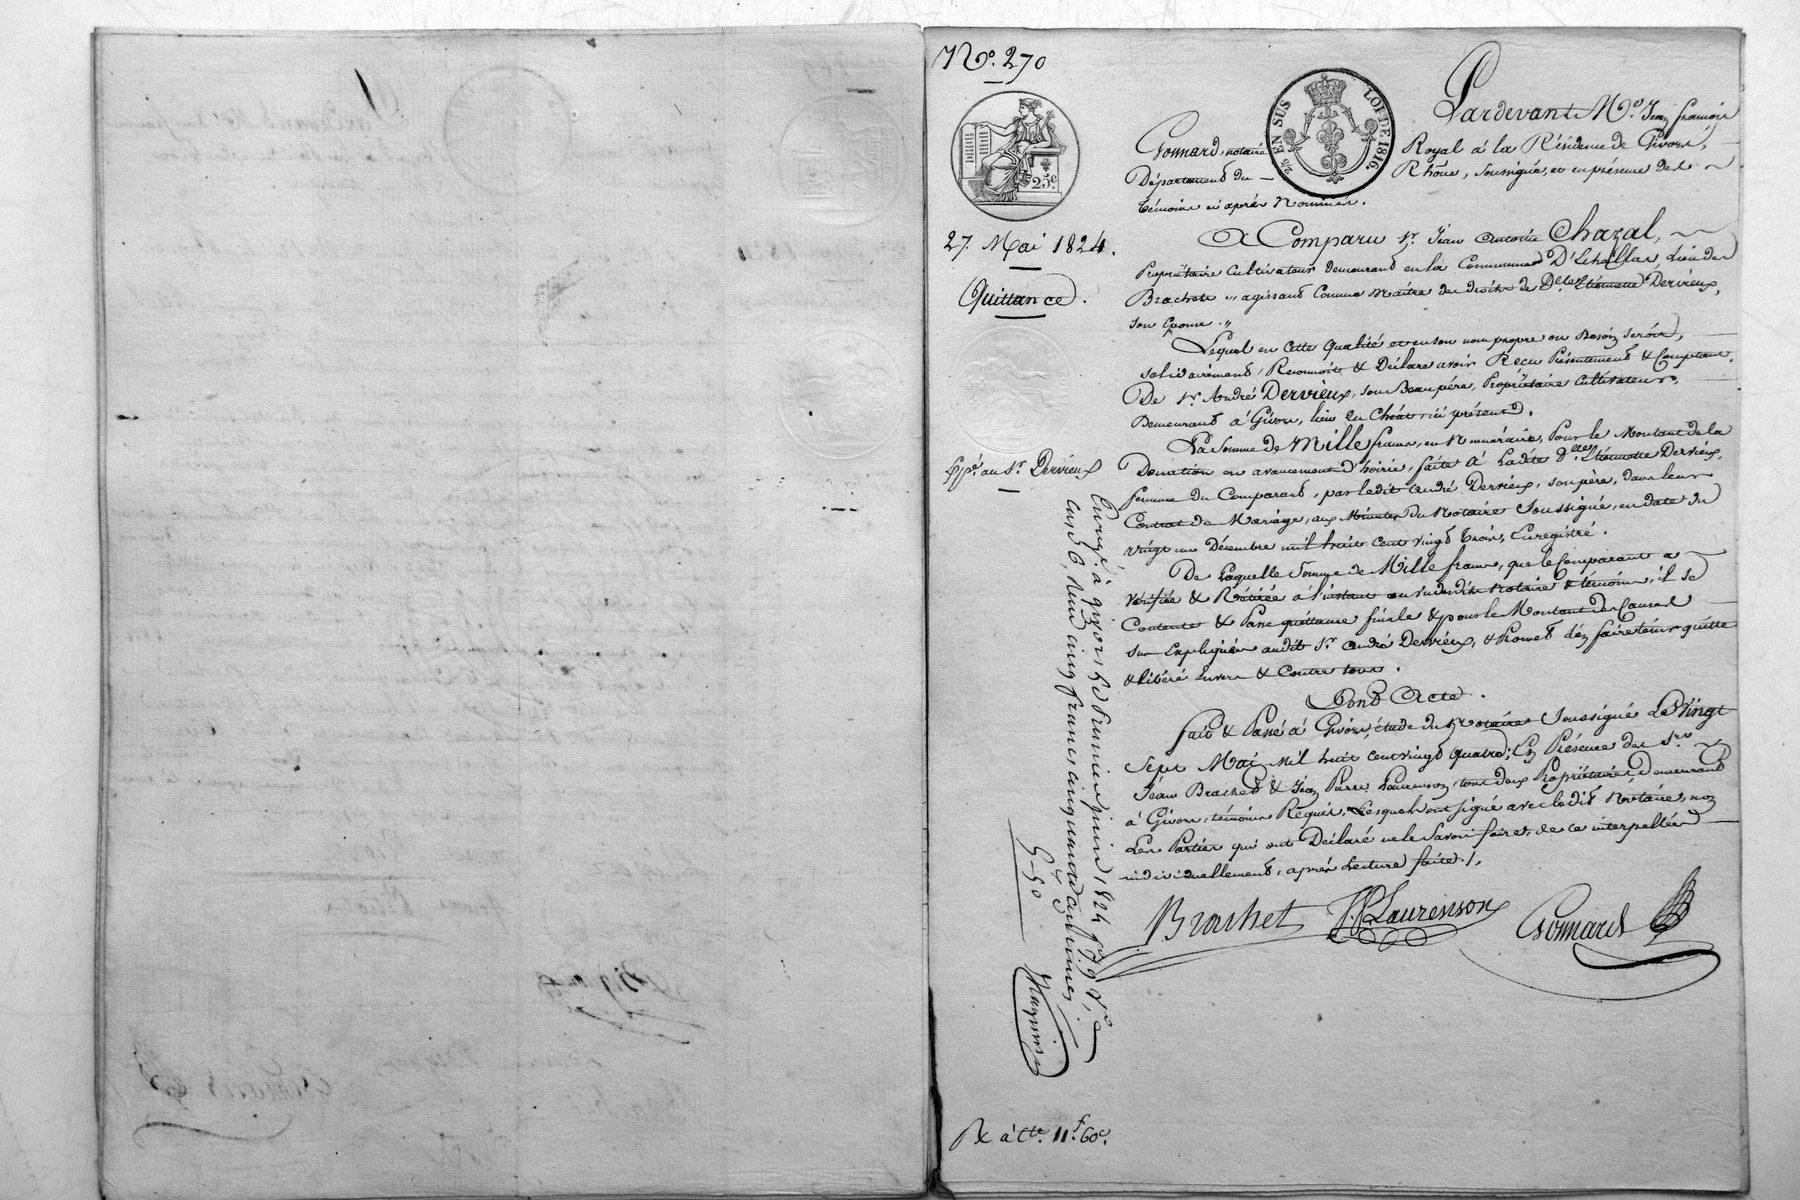 N.º 270
25.c
2/5 EN SUS LOI DE 1816.
27. Mai 1824.
Quittance.
Expé. au Sr. Dervieux
Pardevant Me. Jean françois
Gonnard, notaire Royal à la Résidence de Givors,
Département du Rhône, soussigné, et en présence des
témoins ci après Nommés.
A Comparu Sr. Jean Antoine Chazal,
Propriétaire Cultivateur demeurant en la Commune D'Echallas, lieu des
Brachets ,, agissant Comme Maître des droits de Dlle. Etiennette Dervieux,
son Epouse.,,
Lequel en Cette Qualité et en son nom propre ou Besoin seroit,
solidairement, Reconnoit & Déclare avoir Reçu Présentement & Comptant,
De Sr. André Dervieux, son Beau père, Propriétaire Cultivateur,
Demeurant à Givors, lieu du ici présent.
La Somme de Mille francs, en Numéraire, Pour le Montant de la
Donation en avancement d'hoirie, faite à Ladite Dlle. Etiennette Dervieux,
femme du Comparant, par ledit André Dervieux, son père, dans leur
Contrat de Mariage, aux Minutes du Notaire Soussigné, en date du
vingt un Décembre mil huit cent vingt trois, Enregistré.
De Laquelle Somme de Mille francs, que le Comparant a
vérifiée & Rétirée à l'instant au vu desdits Notaire & témoins, il se
Contente & Passe quittance finale & pour le Montant des Causes
sus Expliquées audit Sr. André Dervieux, & Promet d'en faire tenir quitte
& libéré Envers & Contre tous.
Dont Acte.
fait & Passé à Givors, étude du Notaire Soussigné Le Vingt
Sept Mai Mil huit cent vingt quatre; En Présence des Srs.
Jean Brachet & Jean Pierre Laurenson, tous deux Propriétaires, Demeurant
à Givors, témoins Requis, Lesquels ont signé avec ledit Notaire, non
Les Parties qui ont Déclaré ne le Savoir faire, de ce interpellées
individuellement, après Lecture faite./.
Brachet J.P. Laurenson Gonnard
Enreg.é à givors le premier juin 1824 fo. 79 Vo. C.
Case 6, Reçu cinq francs cinquante centimes
5-50
Rx à Cte. 11.f 60c.